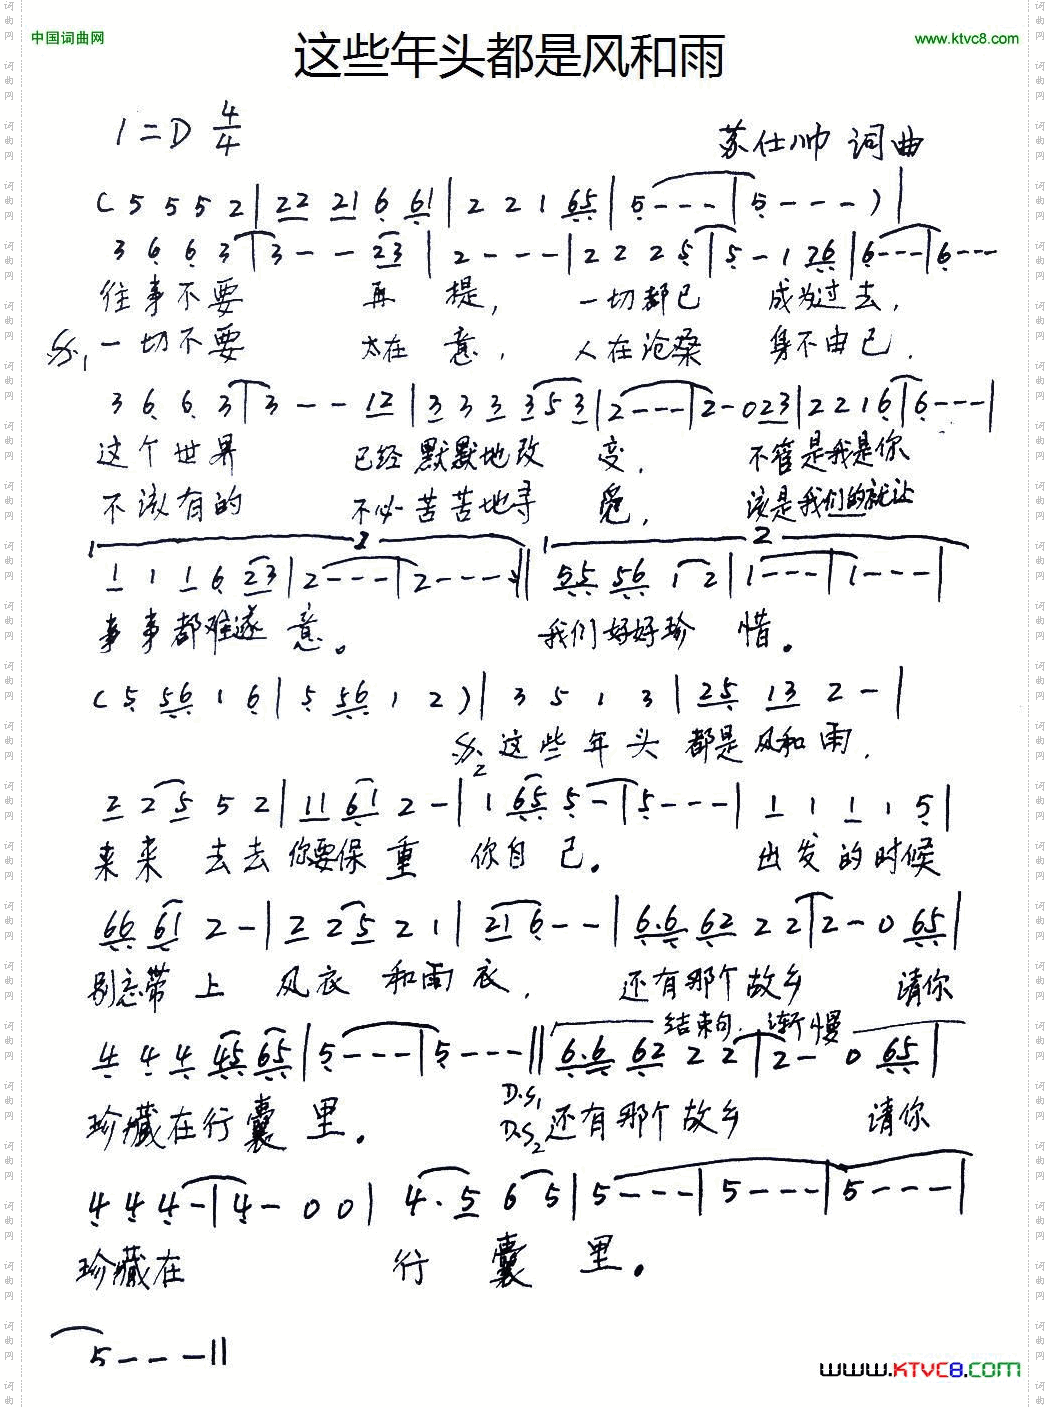 中国词曲网
www.ktvc8.com
这些年头都是风和雨
1=D 4/4
苏仕帅 词曲
( 5 5 5 2 | 22 21 6 61 | 2 2 1 65 | 5 - - - | 5 - - - ) |
3 6 6 3 | 3 - - 23 | 2 - - - | 2 2 2 5 | 5 - 1 76 | 6 - - - | 6 - - -
往事不要 再 提， 一切都已 成为过去，
𝄋1 一切不要 太在 意， 人在沧桑 身不由己．
3 6 6 3 | 3 - - 12 | 3 3 3 3 5 3 | 2 - - - | 2 - 0 23 | 2 2 1 6 | 6 - - - |
这个世界 已经默默地改 变， 不管是我是你
不该有的 不必苦苦地寻 觅， 该是我们的就让
1 2
1 1 1 6 23 | 2 - - - | 2 - - - :|| 55 56 1 2 | 1 - - - | 1 - - - |
事事都难遂 意。 我们好好珍 惜。
( 5 56 1 6 | 5 56 1 2 ) | 3 5 1 3 | 25 13 2 - |
𝄋2 这些年头 都是风和雨．
2 2 5 5 2 | 11 61 2 - | 1 65 5 - | 5 - - - | 1 1 1 1 5 |
来来去去你要保重 你自己。 出发的时候
66 61 2 - | 2 2 5 2 1 | 21 6 - - | 6.6 62 2 2 | 2 - 0 65 |
别忘带上 风衣和雨衣． 还有那个故乡 请你
结束句．渐慢
4 4 4 45 65 | 5 - - - | 5 - - - || 6.6 62 2 2 | 2 - 0 65 |
D.S1
珍藏在行囊里。 D.S2 还有那个故乡 请你
4 4 4 - | 4 - 0 0 | 4 . 5 6 5 | 5 - - - | 5 - - - | 5 - - - |
珍藏在 行 囊 里。
5 - - - ||
www.KTVC8.com